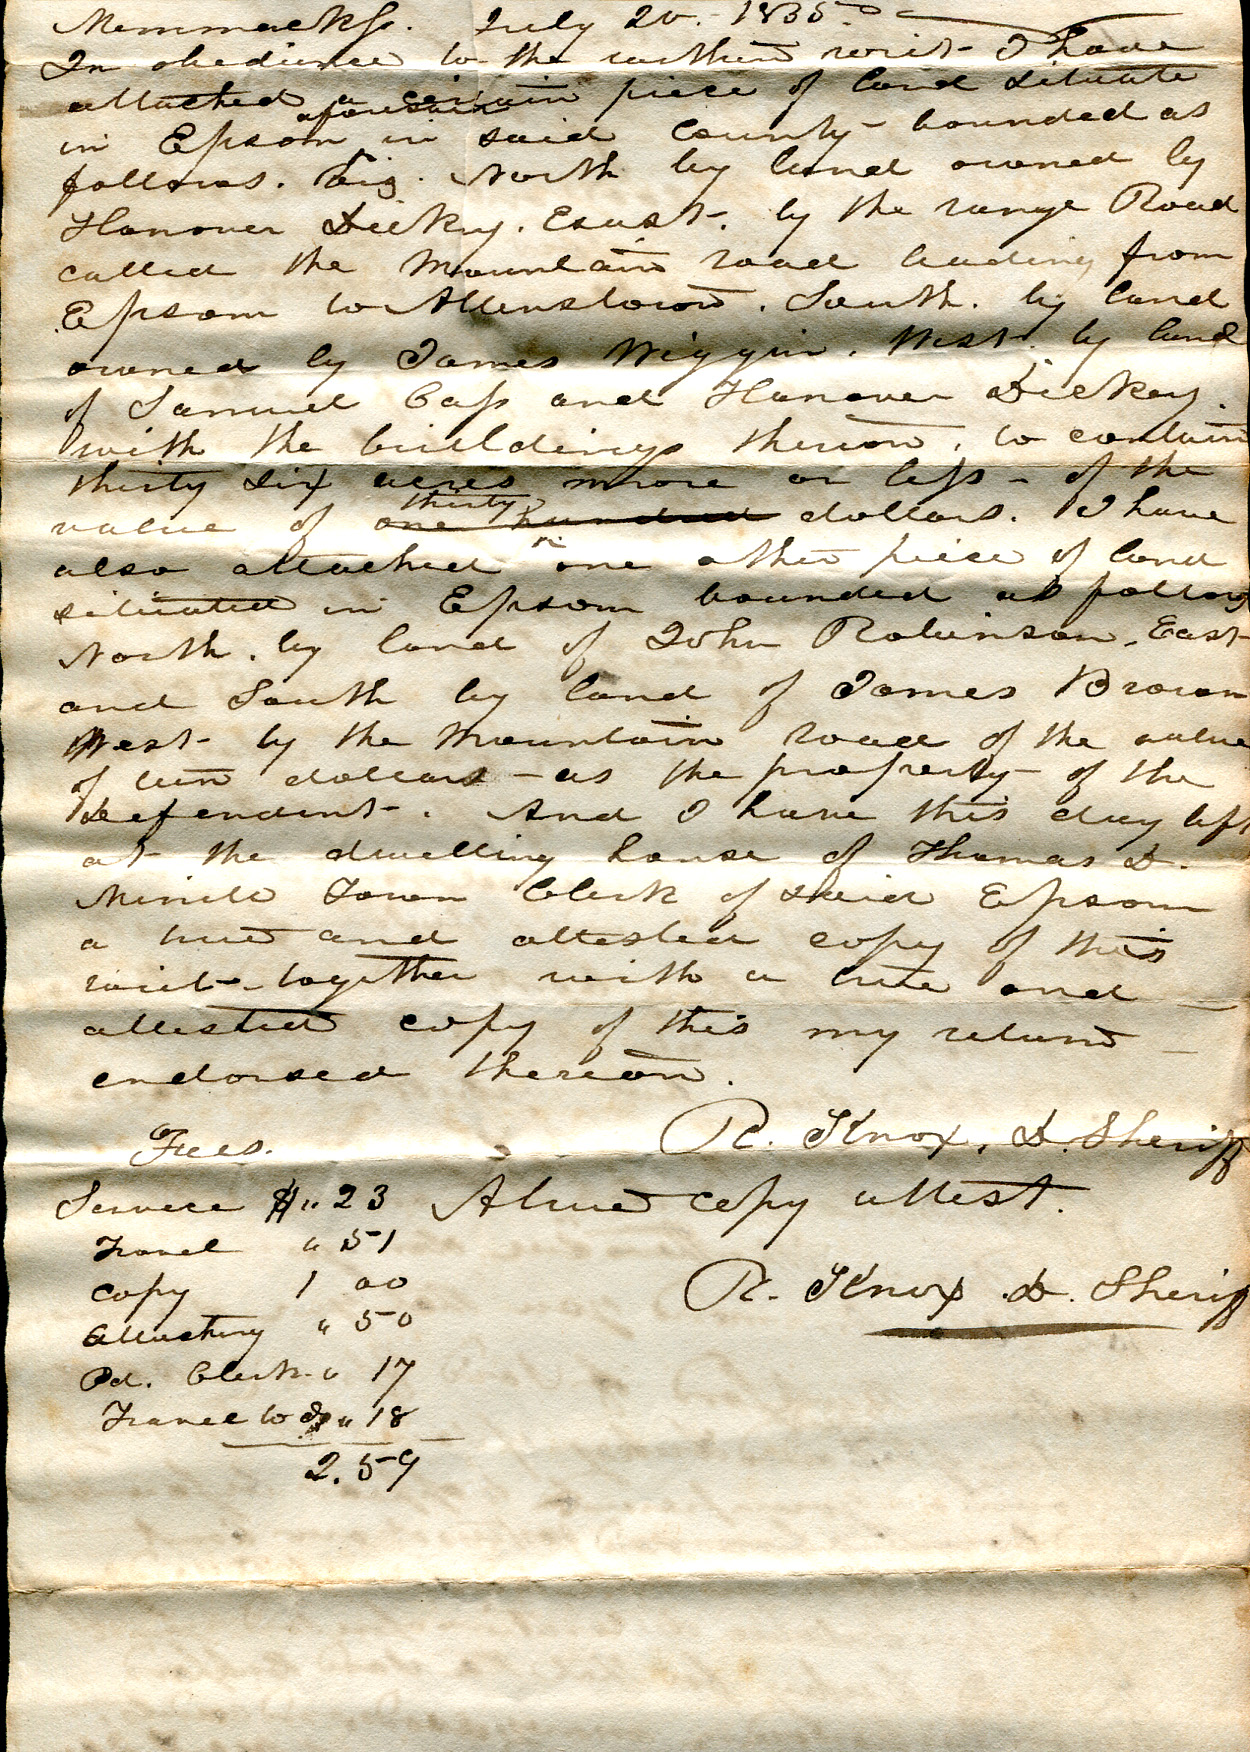 Merrimack Ss. July 20. 1835.
In obedience to the within writ I have
attached a certain piece of land situate
aforesaid
in Epsom in said County bounded as
follows. viz. North by land owned by
Hanover Dickey. East. by the range Road
called the Mountain road leading from
Epsom to Allenstown. South. by land
owned by James Wiggin. West. by land
of Samuel Cass and Hanover Dickey.
with the buildings thereon. to contain
thirty six acres more or less - of the
thirty
value of one hundred dollars. I have
also attached one other piece of land
situated in Epsom bounded as follows
North. by land of John Robinson, East
and South by land of James Brown
West by the Mountain road of the value
of ten dollars - as the property of the
defendent. And I have this day left
at the dwelling house of Thomas D.
Merrill Town Clerk of said Epsom
a true and attested copy of this
writ together with a true and
attested copy of this my return
endorsed thereon.
R. Knox, D. Sheriff
Fees.
Service $ " 23 A true copy attest.
Travel " 51
Copy 1 00 R. Knox D. Sheriff
Attaching " 50
Pd. Clerk " 17
Travel to Do " 18
2.59